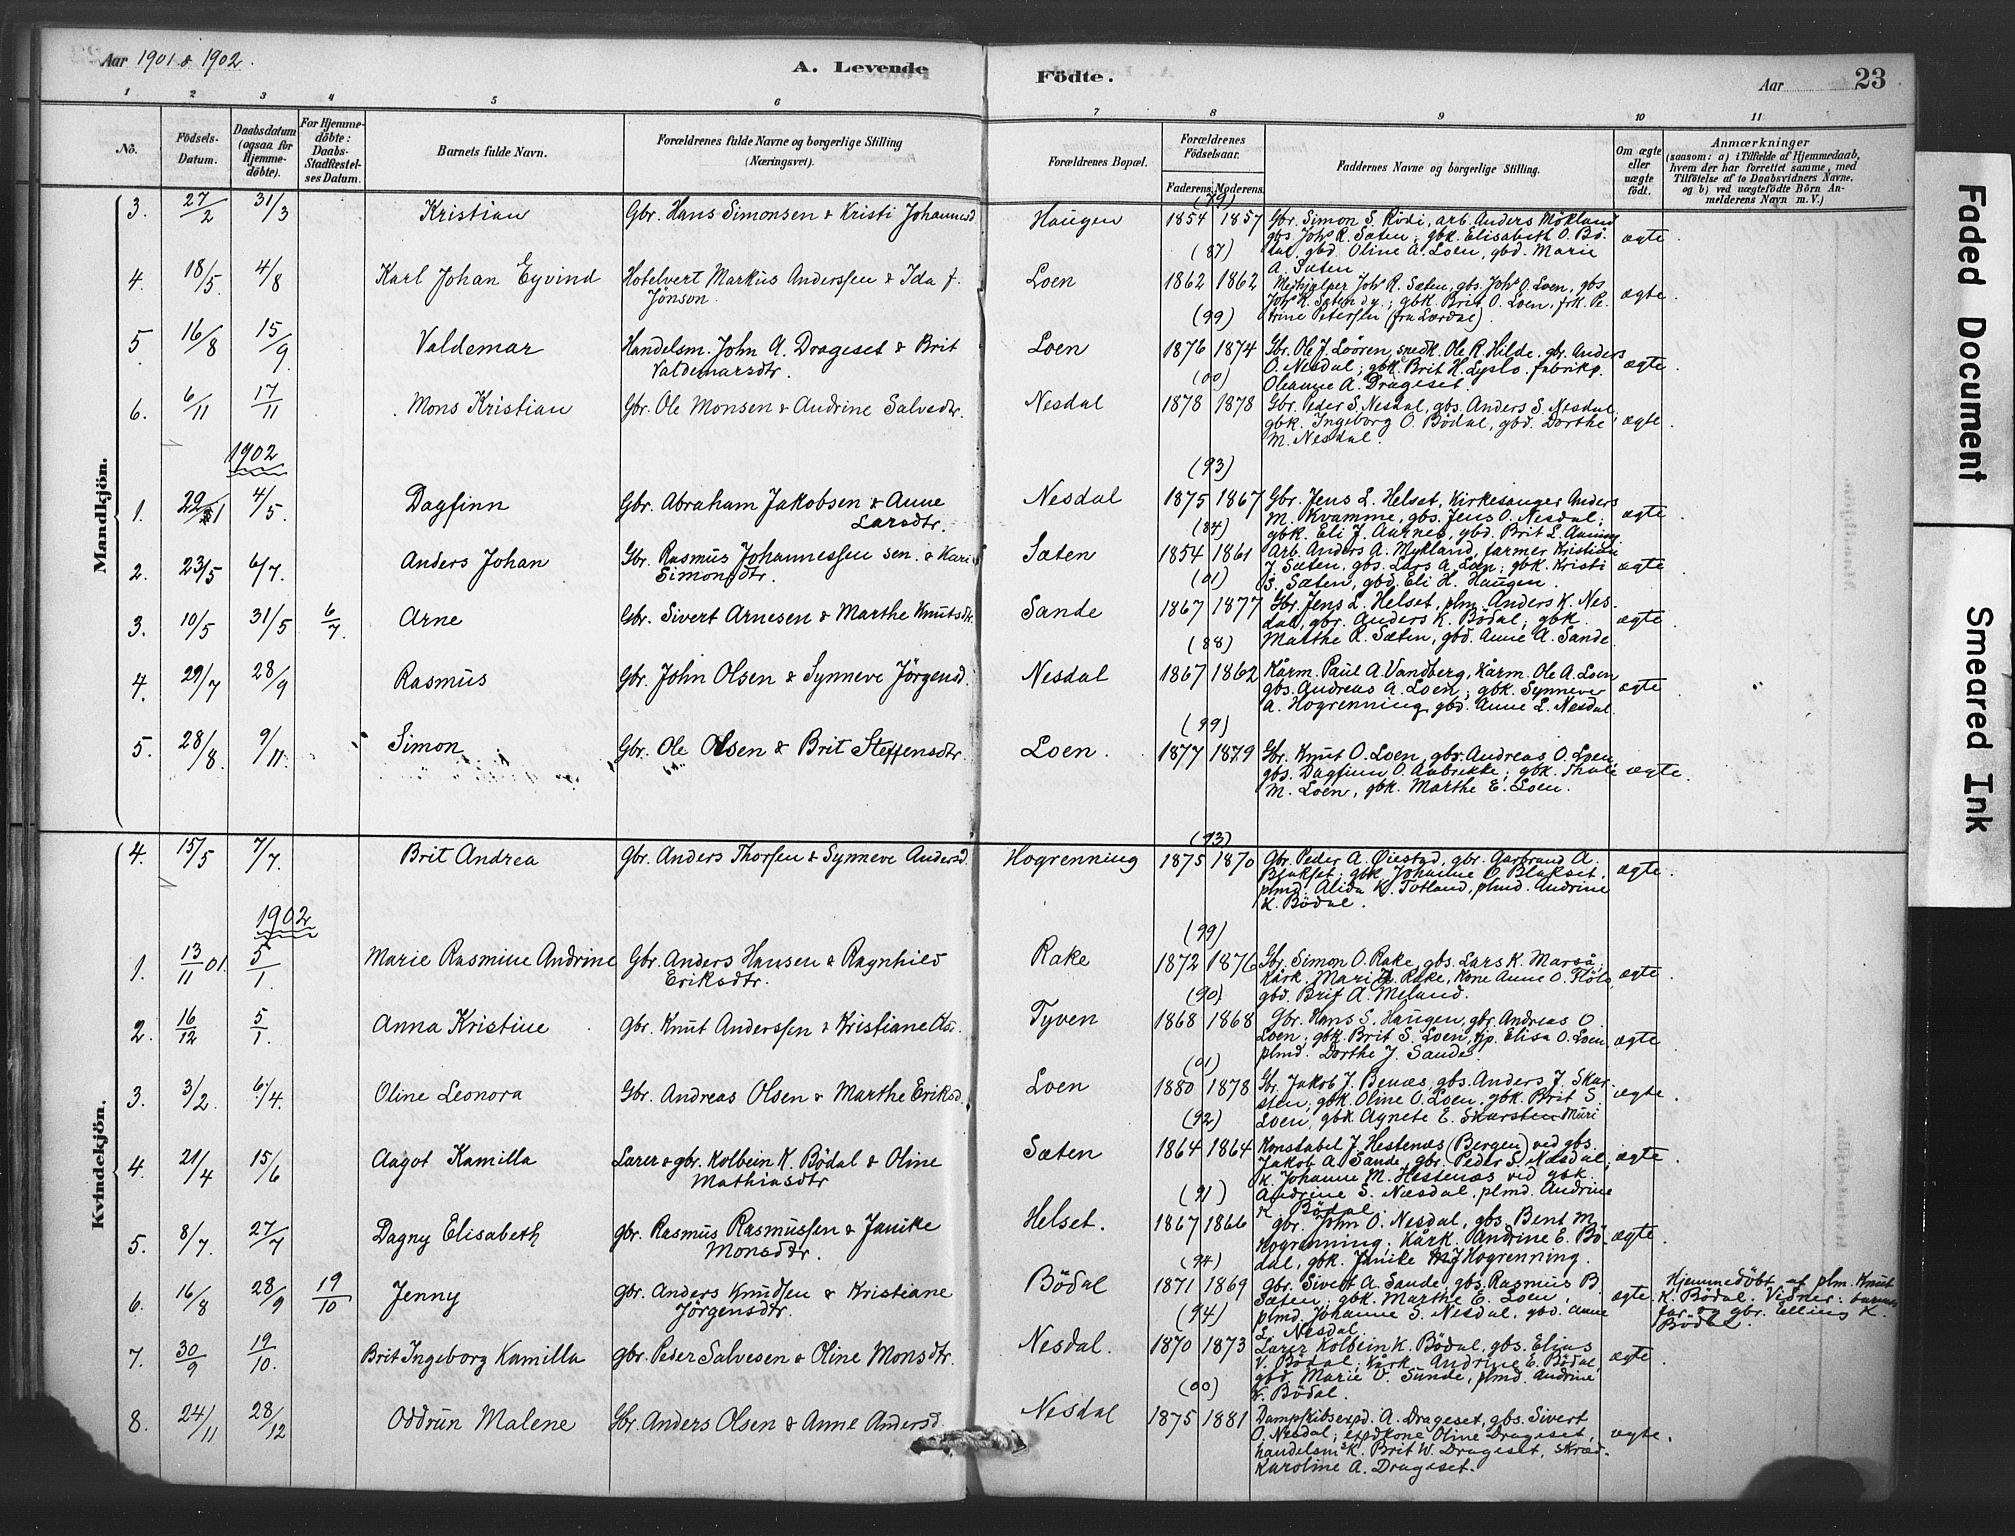 Aar 1901 & 1902.
A. Levende
Födte.
Aar
23
1 2 3 4 5 6 7 8 9 10 11
No.
Födsels-Datum.
Daabsdatum (ogsaa for Hjemmedöbte).
For Hjemmedöbte: Daabs-Stadfæstelses Datum.
Barnets fulde Navn.
Forældrenes fulde Navne og borgerlige Stilling (Næringsvei).
Forældrenes Bopæl.
Forældrenes Födselsaar.
Faderens. Moderens.
Faddernes Navne og borgerlige Stilling.
Om ægte eller uægte födt.
Anmærkninger
(saasom: a) i Tilfælde af Hjemmedaab, hvem der har forrettet samme, med Tilföielse af to Daabsvidners Navne, og b) ved uægtefödte Börn Anmelderens Navn m. V.)
Mandkjön.
3. 27/2 31/3 Kristian Gbr. Hans Simonsen & Kristi Johannesd Haugen (79) 1854 1857 Gbr. Simon S. Rödi, arb. Anders Mökland ægte.
gbs. Johs R. Sæten; gbk. Elisabeth O. Bö-
dal, gbd. Oline A. Loen, gbd. Marie
A. Sæten
4. 18/5 4/8 Karl Johan Eyvind Hotelvert Markus Anderssen & Ida f. Jönson. Loen (87) 1862 1862 Mejhjælper Johs R. Sæten, gbs. Johs O. Loen, gbs ægte.
Johs K. Sæten d.y.; gbk. Brit O. Loen, frk. Pe-
trine Peterssen (fra Lærdal).
5 16/8 15/9. Valdemar Handelsm. John A. Drageset & Brit Valdemarsdtr. Loen (99) 1876 1874 Gbr. Ole J. Looren, snedk. Ole R. Hilde, gbr. Anders ægte.
O. Nesdal; gbk. Brit H. Lyslo, fabrikp.
Oleanne A. Drageset.
6. 6/11 17/11 Mons Kristian Gbr. Ole Monsen & Andrine Salvesdtr. Nesdal (00) 1878 1878 Gbr. Peder S. Nesdal, gbs. Anders S. Nesdal; ægte.
gbk. Ingeborg O. Bödal, gbd. Dorthe
M. Nesdal.
1902
1. 29/1 4/5. Dagfinn Gbr. Abraham Jakobsen & Anne Larsdtr. Nesdal (93) 1875 1867 Gbr. Jens L. Helset, Kirkesanger Anders ægte.
M. Kvamme, gbs. Jens O. Nesdal;
gbk. Eli J. Aarnes, gbd. Brit L. Auning
2. 23/5 6/7. Anders Johan Gbr. Rasmus Johannessen sen. & Kari Simonsdtr. Sæten (84) 1854 1861 Arb. Anders A. Mykland, farmer Kristian ægte.
J. Sæten, gbs. Lars A. Loen; gbk. Kristi
S. Sæten, gbd. Eli H. Haugen.
3. 10/5 31/5 6/7. Arne Gbr. Sivert Arnesen & Marthe Knutsdtr. Sande (01) 1867 1877 Gbr. Jens L. Helset, plm. Anders K. Nes- ægte.
dal, gbr. Anders K. Bödal; gbk.
Marthe R. Sæten, gbd. Anne A. Sande
4. 29/7 28/9 Rasmus Gbr. John Olsen & Synneve Jörgensd. Nesdal (88) 1867 1862 Kårm. Paul A. Vandberg, kårm. Ole A. Loen ægte.
gbs. Andreas A. Loen; gbk. Synneve
A. Hogrenning, gbd. Anne L. Nesdal.
5. 28/8. 9/11. Simon Gbr. Ole Olsen & Brit Steffensdtr. Loen. (99) 1877 1879 Gbr. Knut O. Loen, gbs. Andreas O. Loen, ægte.
gbs. Dagfinn O. Aabrekke; gbk. Thale
M. Loen, gbk. Marthe E. Loen.
Kvindekjön.
4. 15/5 7/7. Brit Andrea Gbr. Anders Thorsen & Synneve Andersd. Hogrenning (93) 1875 1870 Gbr. Peder A. Øiestad, gbr. Garbrand A. ægte.
Blakset; gbk. Johanne O. Blakset,
plmd. Alida K. Totland, plmd. Andrine
K. Bödal.
1902
1. 13/11 01. 5/1 Marie Rasmine Andrine Gbr. Anders Hansen & Ragnhild Eriksdtr. Rake (99) 1872 1876 Gbr. Simon O. Rake, gbs. Lars K. Marså; ægte.
Kårk. Mari Rake, Kone Anne O. Flölo,
gbd. Brit A. Meland.
2. 16/12 5/1. Anna Kristine gbr. Knut Anderssen & Kristiane Olsd. Tyven (90) 1868 1868 Gbr. Hans S. Haugen, gbr. Andreas O. ægte.
Loen; gbk. Brit S. Loen, tjp. Elisa O. Loen,
plmd. Dorthe J. Sande
3. 3/2. 6/4. Oline Leonora Gbr. Andreas Olsen & Marthe Eriksd. Loen (01) 1880 1878 Gbr. Jakob J. Benæs, gbs. Anders J. Skar- ægte.
sten; gbk. Oline O. Loen, gbk. Brit S.
Loen, gbk. Agnete E. Skarsten Muri
4. 21/4 15/6 Aagot Kamilla Lærer & gbr. Kolbein K. Bödal & Oline Mathiasdtr Sæten (92) 1864 1864 Konstabel J. Hestenæs (Bergen) ved gbs. ægte.
Jakob A. Sande, gbr. Peder S. Næsdal;
K. Johanne M. Hestenæs ved gbk.
Andrine S. Næsdal, plmd. Andrine
K. Bödal.
5. 8/7. 27/7 Dagny Elisabeth gbr. Rasmus Rasmussen & Janike Monsdtr. Helset. (91) 1867 1866 gbr. John O. Nesdal, gbs. Bent M. ægte.
Hogrenning; Kårk. Andrine E. Bö-
dal, gbk. Janike MJ Hogrenning.
6. 16/8 28/9 19/10 Jenny gbr. Anders Knudsen & Kristiane Jörgensdtr. Bödal (94) 1871 1869 gbr. Sivert A. Sande, gbs. Rasmus B. ægte.
Sæten, gbk. Marthe E. Loen,
plmd. Johanne S. Nesdal, gbd. Anne
L. Nesdal.
Hjemmedöbt af plm. Knut
K. Bödal. Vidner: barnets
far og gbr. Elling K.
Bödal.
7. 30/9 19/10. Brit Ingeborg Kamilla gbr. Peder Salvesen & Oline Monsdtr. Nesdal. (94) 1870 1873 Lærer Kolbein K. Bödal, gbs. Elias ægte.
V. Bödal; Kårk. Andrine E. Bödal,
gbd. Marie O. Sunde, plmd. Andrine
K. Bödal.
8. 24/11 28/12 Oddrun Malene Gbr. Anders Olsen & Anne Andersd. Nesdal (00) 1875 1881 Dampskibsexpd. A. Drageset, gbs. Sivert ægte.
O. Nesdal; expdkone Oline Drageset,
handelsmk. Brit W. Drageset, skræd.
Karoline A. Drageset.
Faded Document
Smeared Ink